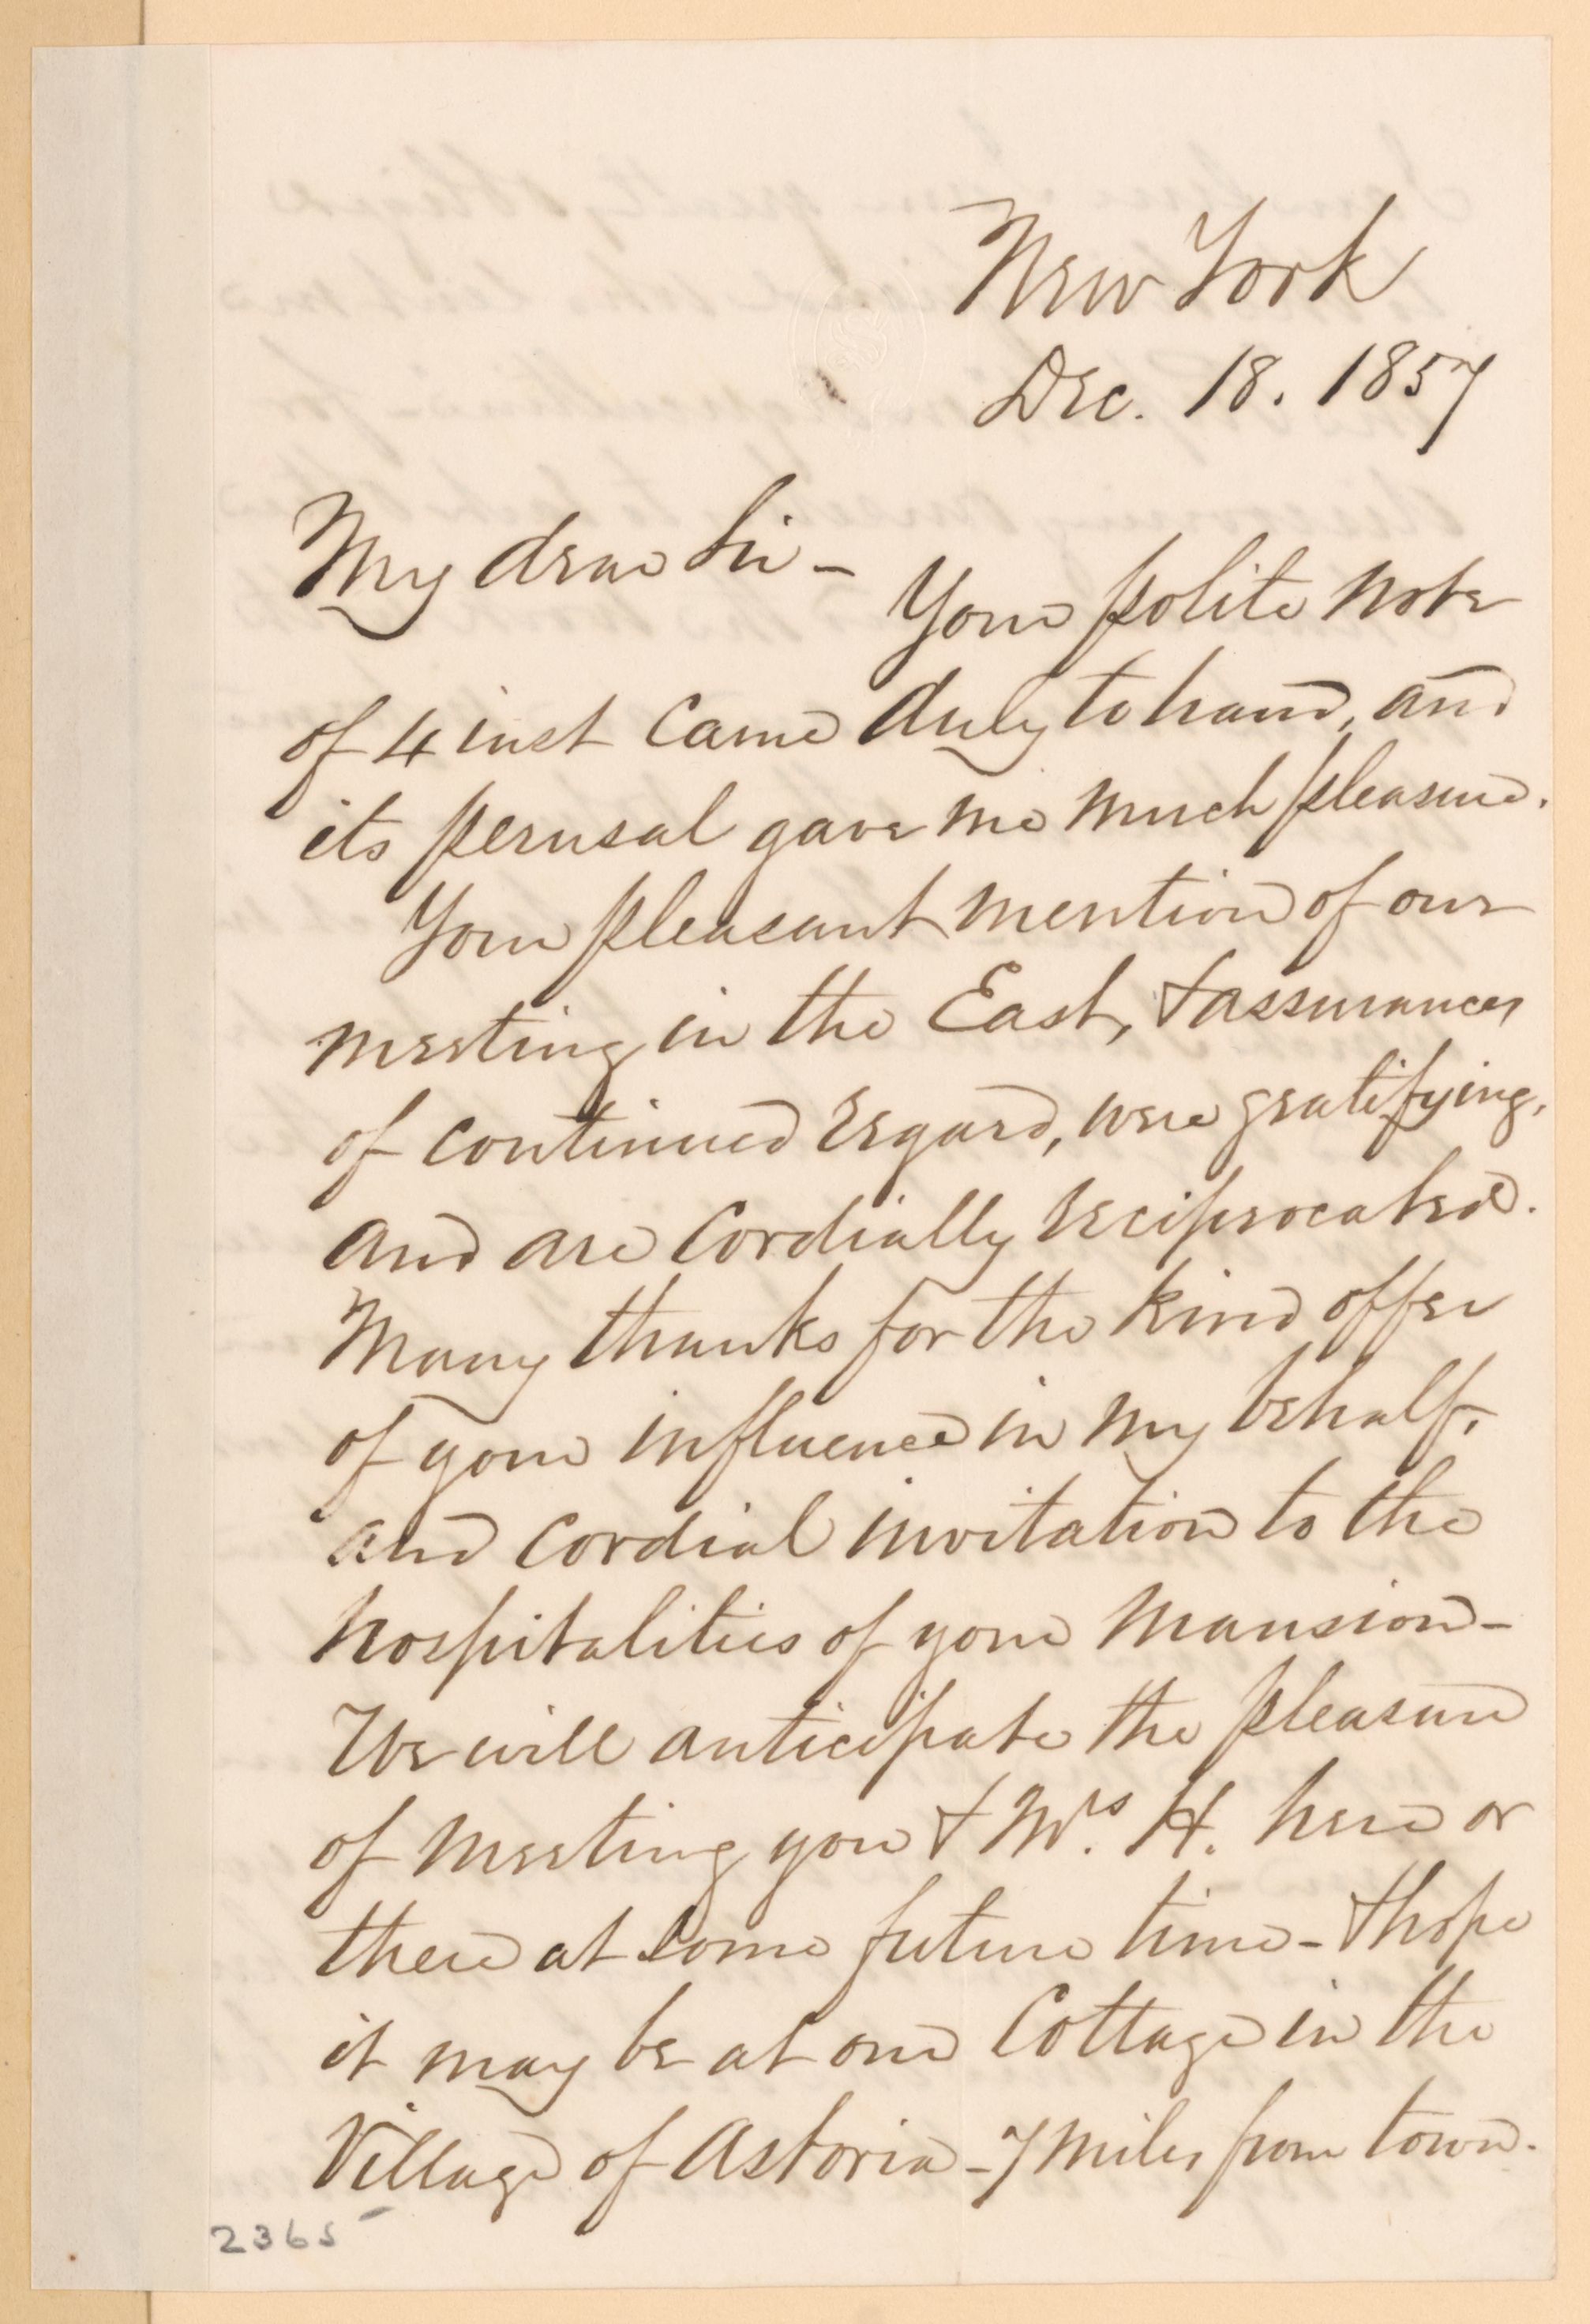 New York
Dec. 18. 1857
My dear Sir -
Your polite note
of 4 inst came duly to hand, and
its perusal gave me much pleasure.
Your pleasant mention of our
meeting in the East, & assurances
of continued regard, were gratifying,
and are cordially reciprocated.
Many thanks for the kind offer
of your influence in my behalf,
and cordial invitation to the
hospitalities of your Mansion -
We will anticipate the pleasure
of meeting you & Mrs. H. here or
there at some future time - & hope
it may be at our Cottage in the
Village of Astoria - 7 miles from town.
2365